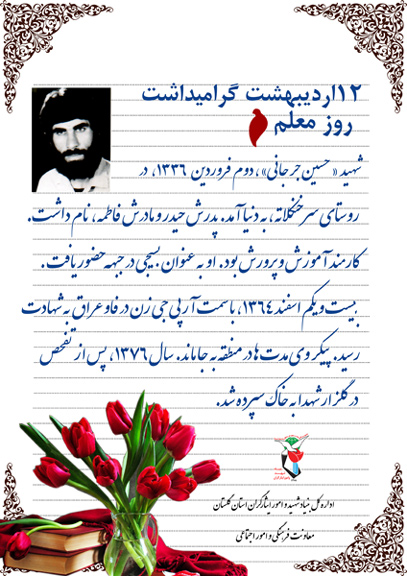 ۱۲اردیبهشت گرامیداشت
روز معلم
شهید «حسین جرجانی»، دوم فروردین ۱۳۳۶، در
روستای سرخنکلاته، به دنیا آمد. پدرش حیدر و مادرش فاطمه، نام داشت.
کارمند آموزش و پرورش بود. او به عنوان بسیجی در جبهه حضور یافت.
بیست و یکم اسفند ۱۳۶۴، با سمت آر پی جی زن در فاو عراق به شهادت
رسید. پیکر وی مدت ها در منطقه به جا ماند. سال ۱۳۷۶، پس از تفحص
در گلزار شهدا به خاک سپرده شد.
اداره کل بنیاد شهید و امور ایثارگران استان گلستان
معاونت فرهنگی و امور اجتماعی